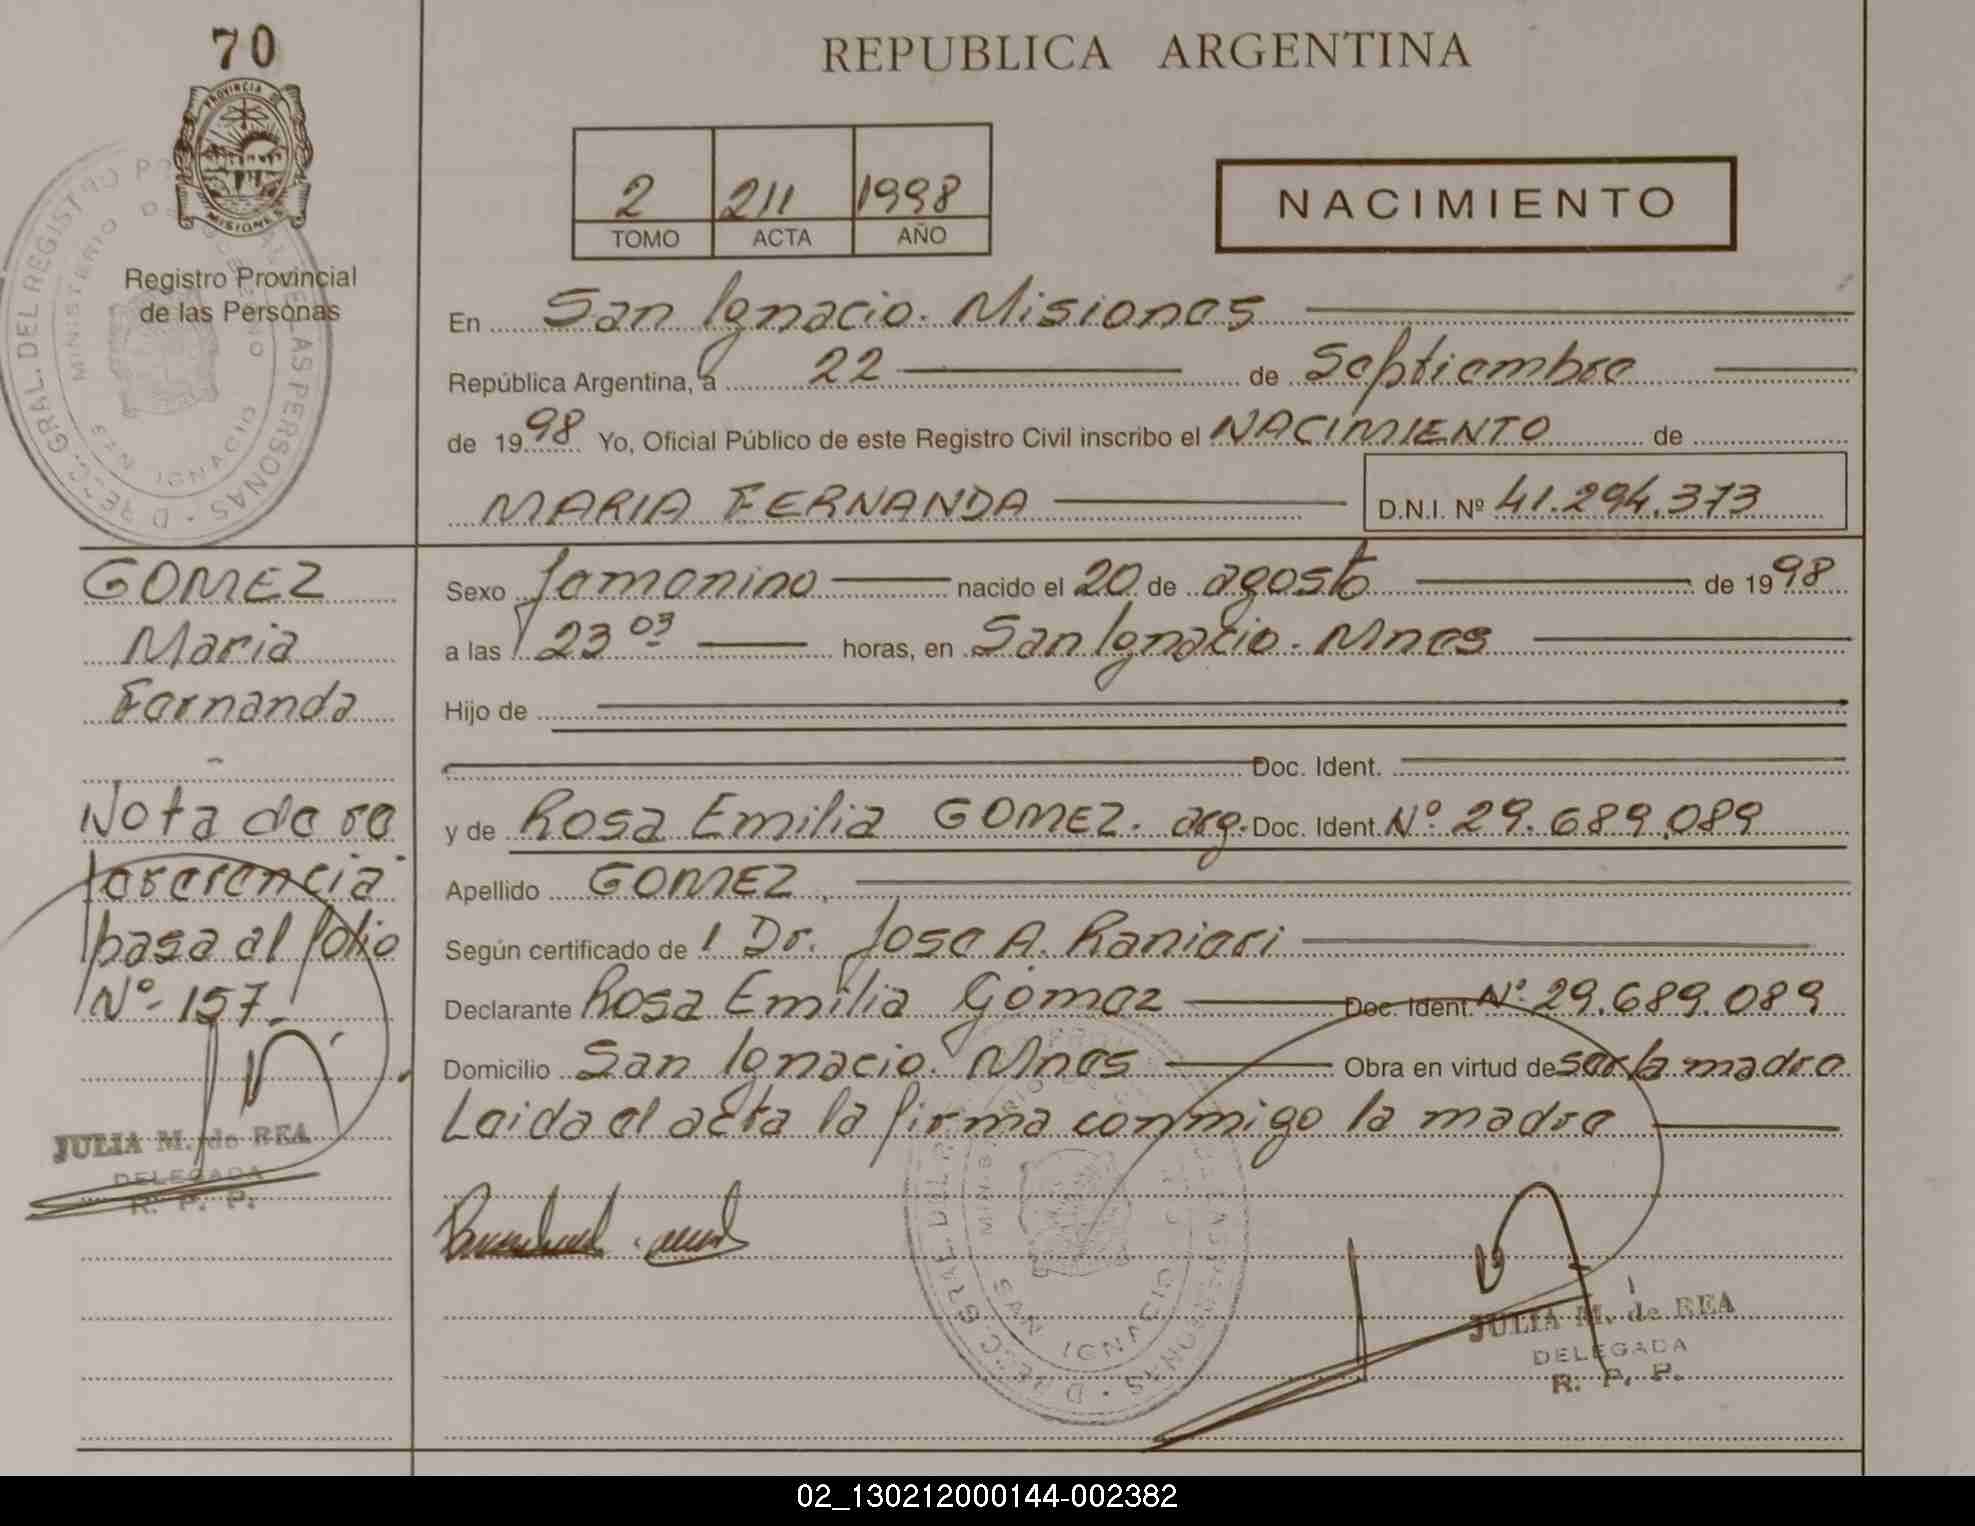 70
PROVINCIA DE
MISIONES
Registro Provincial
de las Personas
REPUBLICA ARGENTINA
2 211 1998
TOMO ACTA AÑO
NACIMIENTO
En San Ignacio. Misiones
República Argentina, a 22 de Septiembre
de 1998 Yo, Oficial Público de este Registro Civil inscribo el NACIMIENTO de
MARIA FERNANDA D.N.I. Nº 41.294.373
GOMEZ
Maria
Fernanda
Nota de re
ferencia
pasa al folio
Nº 157
JULIA M. de REA
DELEGADA
R. P. P.
Sexo femenino nacido el 20 de agosto de 1998
a las 23 03 horas, en San Ignacio. Mnes
Hijo de
Doc. Ident.
y de Rosa Emilia GOMEZ. arg. Doc. Ident Nº 29.689.089
Apellido GOMEZ
Según certificado de Dr. Jose A. Ranieri
Declarante Rosa Emilia Gómez Doc. Ident. Nº 29.689.089
Domicilio San Ignacio. Mnes Obra en virtud de ser la madre
Leida el acta la firma conmigo la madre
GRAL. DEL REGISTRO
MINISTERIO
SAN IGNACIO
JULIA M. de REA
DELEGADA
R. P. P.
02_130212000144-002382